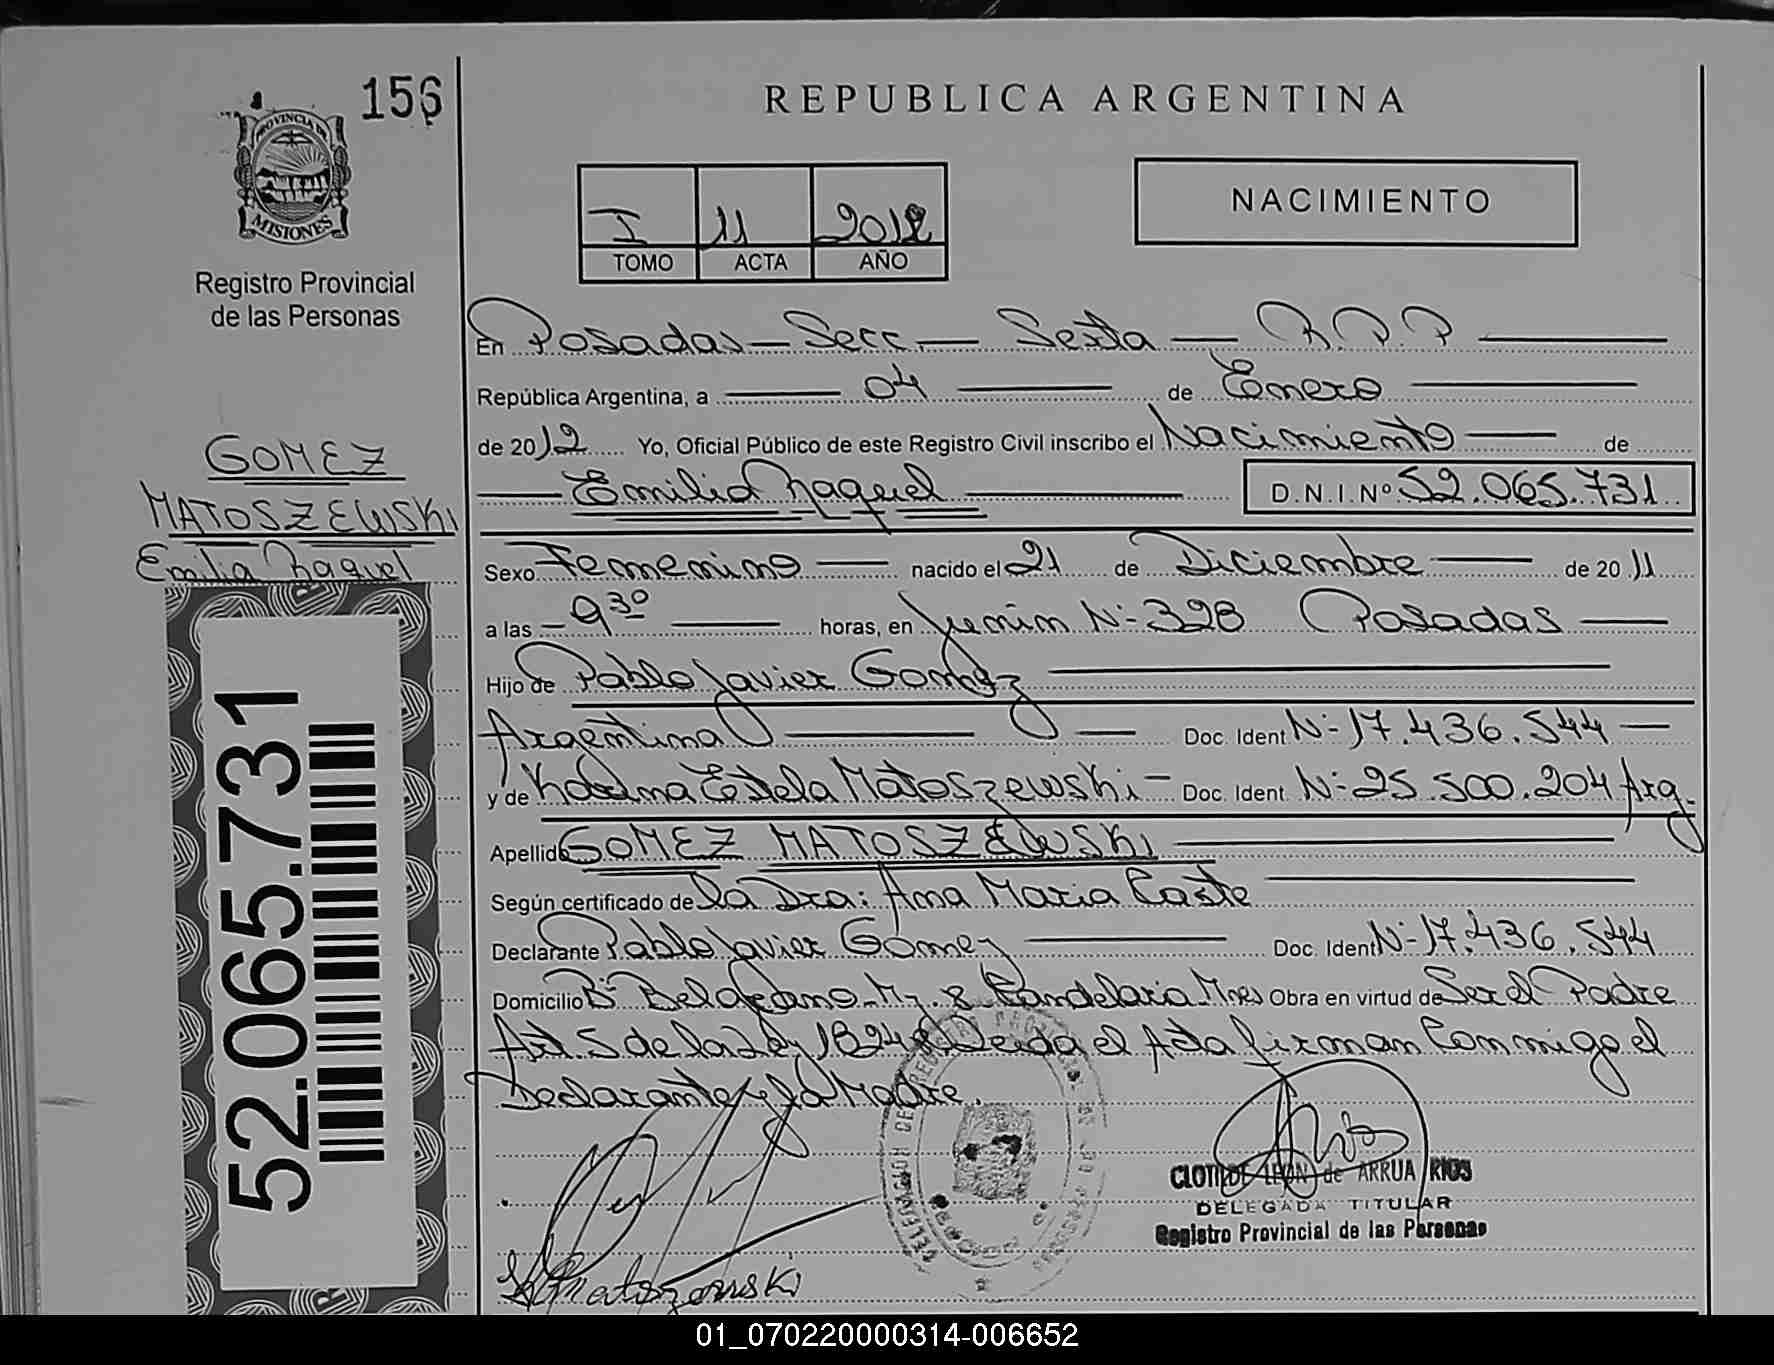 156
PROVINCIA DE
MISIONES
Registro Provincial
de las Personas
REPUBLICA ARGENTINA
I 11 2012
TOMO ACTA AÑO
NACIMIENTO
En Posadas — Secc. — Sexta — R.P.P
República Argentina, a 04 de Enero
de 2012 Yo, Oficial Público de este Registro Civil inscribo el Nacimiento de
Emilia Raquel D.N.I.Nº 52.065.731
GOMEZ
MATOSZEWSKI
Emilia Raquel
52.065.731
Sexo Femenino nacido el 21 de Diciembre de 2011
a las 9 30 horas, en Junin Nº 328 Posadas
Hijo de Pablo Javier Gomez
Argentina Doc. Ident Nº 17.436.544
y de Estela Matoszewski Doc. Ident. Nº 25.500.204 Arg.
Apellido GOMEZ MATOSZEWSKI
Según certificado de la Dra: Ana Maria
Declarante Pablo Javier Gómez Doc. Ident Nº 17.436.544
Domicilio Bº Belgrano Mz. 8 Candelaria Mnes Obra en virtud de Ser el Padre
Art. 5 de la Ley 18248 Leida el Acta firman Conmigo el
Declarante y la Madre.
CLOTILDE LEON de ARRUA RIOS
DELEGADA TITULAR
Registro Provincial de las Personas
Matoszewski
01_070220000314-006652